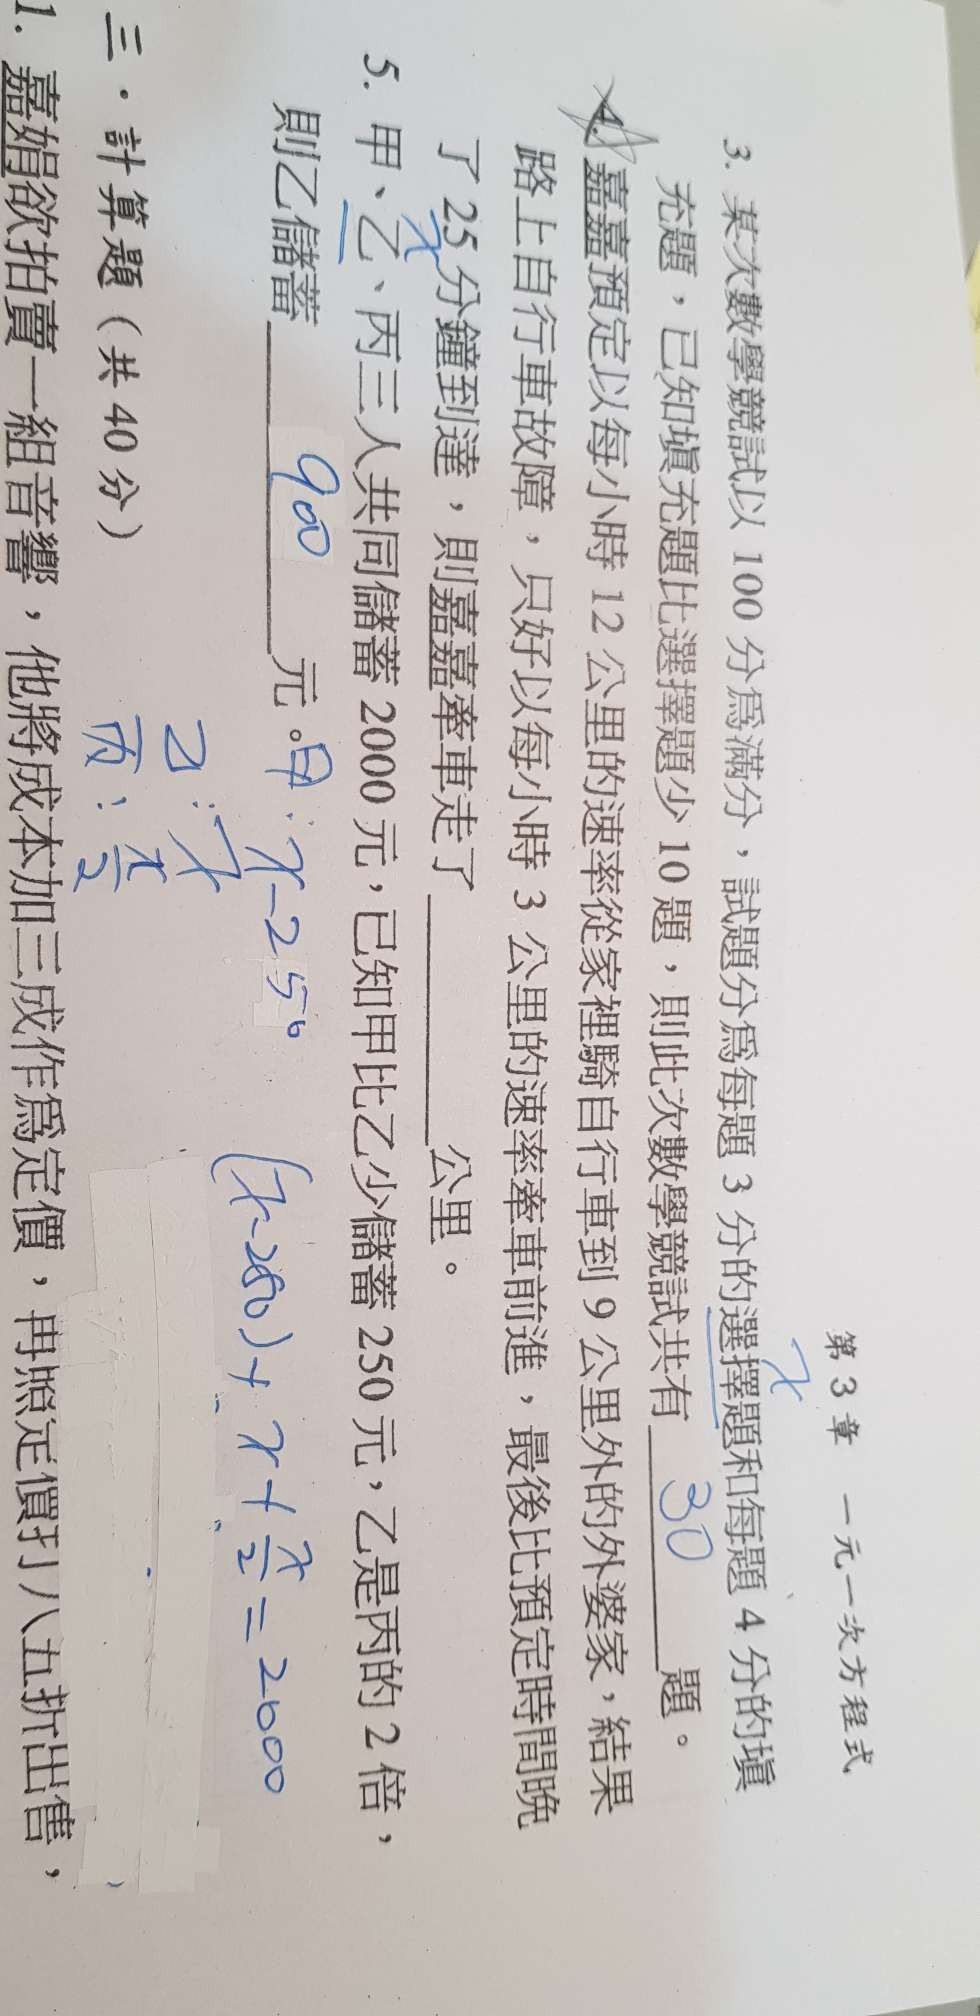 第 3 章　一元一次方程式
3. 某次數學競試以 100 分為滿分，試題分為每題 3 分的選擇題和每題 4 分的填
x
充題，已知填充題比選擇題少 10 題，則此次數學競試共有 30 題。
4. 嘉嘉預定以每小時 12 公里的速率從家裡騎自行車到 9 公里外的外婆家，結果
路上自行車故障，只好以每小時 3 公里的速率牽車前進，最後比預定時間晚
了 25 分鐘到達，則嘉嘉牽車走了 公里。
x
5. 甲、乙、丙三人共同儲蓄 2000 元，已知甲比乙少儲蓄 250 元，乙是丙的 2 倍，
則乙儲蓄 900 元。
甲：x-250
乙：x
丙：x/2
(x-250)+x+x/2=2000
三．計算題（共 40 分）
1. 嘉娟欲拍賣一組音響，他將成本加三成作為定價，再照定價打八五折出售，